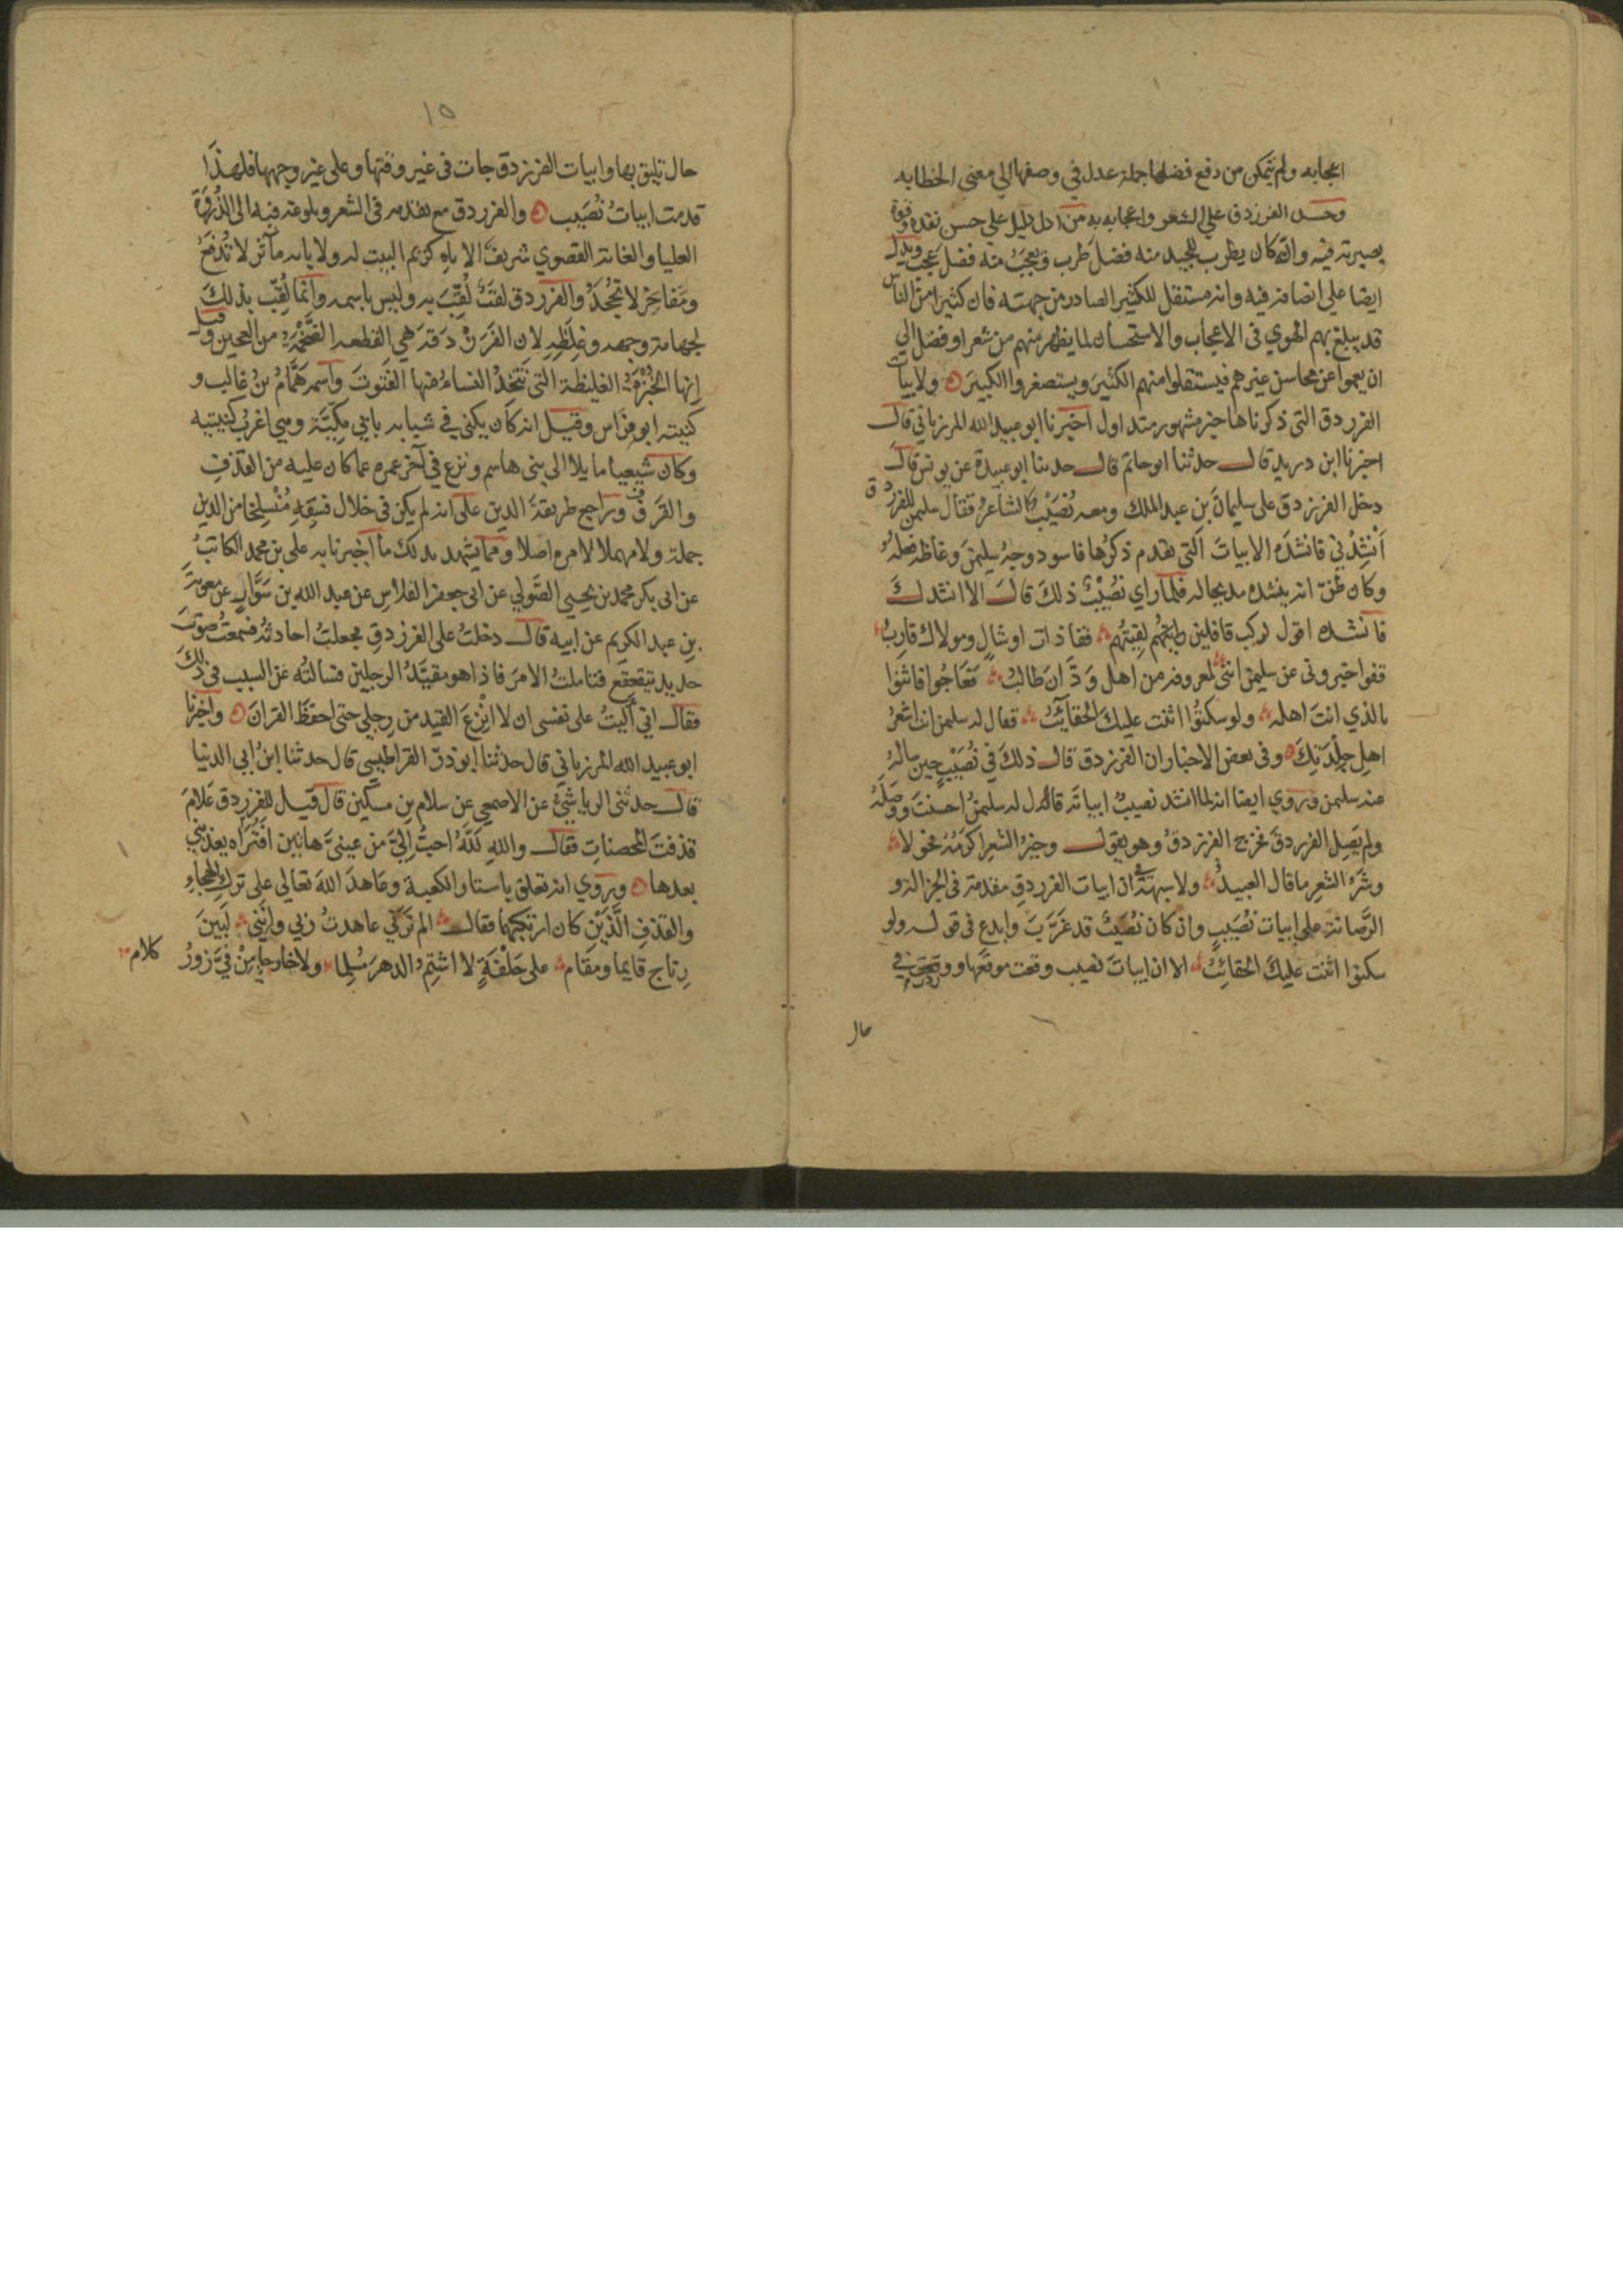 اعجابه ولم يتمكن من دفع فضلها جملة عدل في وصفها الي معني الخطابه
وحسد الفرزدق علي الشعر واعجابه به من ادل دليل علي حسن نقده وقوة
بصيرته فيه وانه كان يطرب للجيد منه فضل طرب ويعجب منه فضل عجب ويدل
ايضا علي انصافه فيه وانه مستقل للكثير الصادر من جهته فان كثيرا من الناس
قد يبلغ بهم الهوي في الاعجاب والاستحسان لما يظهر منهم من شعر او فضل الي
ان يعموا عن محاسن غيرهم فيستقلوا منهم الكثير ويستصغروا الكبير ولابيات
الفرزدق التي ذكرناها خبر مشهور متداول اخبرنا ابو عبيد الله المرزباني قال
اخبرنا ابن دريد قال حدثنا ابو حاتم قال حدثنا ابو عبيدة عن يونس قال
دخل الفرزدق على سليمان بن عبد الملك ومعه نُصَيْب الشاعر فقال سليمن للفرزدق
أنشِدْني فانشده الابيات التي تقدم ذكرها فاسود وجه سليمن وغاظه فعله
وكان ظن انه ينشده مديحا له فلما راي نُصَيْبٌ ذلك قال الا انشدك
فانشده اقول لركب قافلين لقيتهم قفا ذات اوشال ومولاك قاربُ
قفوا خبروني عن سليمن انني لمعروفه من اهل وَدَّان طالبُ فعاجوا فاثنوا
بالذي انت اهله ولو سكتوا اثنت عليك الحقائبُ فقال له سليمن انت اشعر
اهل جِلْدَتِكَ وفي بعض الاخبار ان الفرزدق قال ذلك في نُصَيْبٍ حين ساله
عنه سليمن وروي ايضا انه لما انشد نصيب ابياته قال له سليمن احسنت ووصَلَهُ
ولم يَصِل الفرزدق فخرج الفرزدق وهو يقول وخير الشعر اكرمه رجالا
وشَرُّ الشعر ما قال العبيدُ ولا شبهة في ان ابيات الفرزدق مقدمة في الجزالة و
الرصانة على ابيات نُصَيْبٍ وان كان نُصَيْبٌ قد غَرَّبَ وابدع في قوله ولو
سكتوا اثنت عليك الحقائبُ الا ان ابيات نصيب وقعت موقعها ووردت في
حال
١٥
حال تليق بها وابيات الفرزدق جات في غير وقتها وعلى غير وجهها فلهذا
قدمت ابياتُ نُصَيْب والفرزدق مع تقدمه في الشعر وبلوغه فيه الى الذروة
العليا والغاية القصوي شريف الاباء كريم البيت له ولابايه مآثر لا تُدْفَعُ
ومَفاخِرُ لا تُجْحَدُ والفرزدق لقبٌ لُقِّبَ به وليس باسمه وانما لُقِّب بذلك
لجهامة وجهه وغِلَظِهِ لان الفَرَزْدَقة هي القطعة الضخمة من العجين وقيل
إنها الخُبْزَةُ الغليظة التي تَتَّخِذُ النساءُ منها الفَتوت واسمه هَمَّامُ بنُ غالب و
كنيته ابو فراس وقيل انه كان يكنى في شبابه بابي مُكَيَّة وهي اغرب كنيتيه
وكان شيعيا مايلا الى بني هاشم ونزع في آخر عمره عما كان عليه من القذف
والفسق وراجع طريقة الدين على انه لم يكن في خلال فسقه مُنْسلِخا من الدين
جملة ولا مهملا لامره اصلا ومما يشهد بذلك ما اخبرنا به علي بن محمد الكاتبُ
عن ابي بكر محمد بن يحيى الصُّولي عن ابي جعفر الفلاس عن عبد الله بن سَوَّار عن معوية
بن عبد الكريم عن ابيه قال دخلت على الفرزدق فجعلتُ احادثه فسمعت صوت
حديد يتقعقع فتاملت الامر فاذا هو مقيَّد الرجلين فسالته عن السبب في ذلك
فقال اني آليت على نفسي ان لا انزِع القيد من رجلي حتى احفظ القران واخبرنا
ابو عبيد الله المرزباني قال حدثنا ابو ذرّ القراطيسي قال حدثنا ابن ابي الدنيا
قال حدثني الرياشيّ عن الاصمعي عن سلام بن مسكين قال قيل للفرزدق علام
قذفت المحصنات فقال والله لَلّه احبُّ إليّ من عينيَّ هاتين افتراه يعذبني
بعدها ورُوي انه تعلق باستار الكعبة وعاهد الله تعالى على ترك الهجاء
والقذف الَّذَيْنِ كان ارتكبهما فقال الم ترني عاهدت ربي وإنّني لَبَيْنَ
رِتاج قايما ومَقام على حَلْفَةٍ لا اشتِمُ الدهر مُسْلِما ولا خارجا مِنْ فِيَّ زورُ
كلام